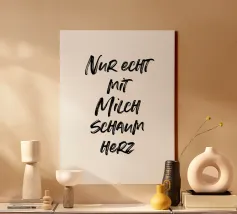 Nur echt
mit
Milch
schaum
Herz